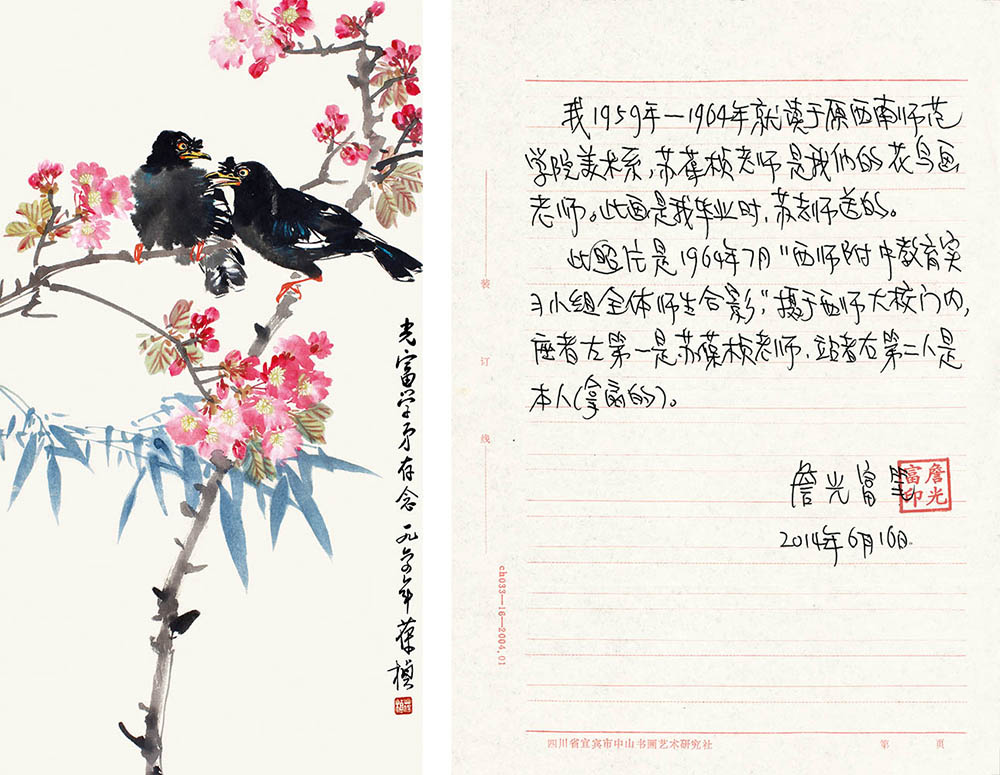 光富学弟存念 一九年葆桢
我1959年—1964年就读于原西南师范
学院美术系,苏葆桢老师是我们的花鸟画
老师。此画是我毕业时,苏老师送的。
此照片是1964年7月"西师附中教育实
习小组全体师生合影",摄于西师大校门内,
座者左第一是苏葆桢老师,站者右第二人是
本人(拿扇的)。
詹光富
詹光富印
2014年6月16日
装订线
ch033—16—2004.01
四川省宜宾市中山书画艺术研究社 第 页